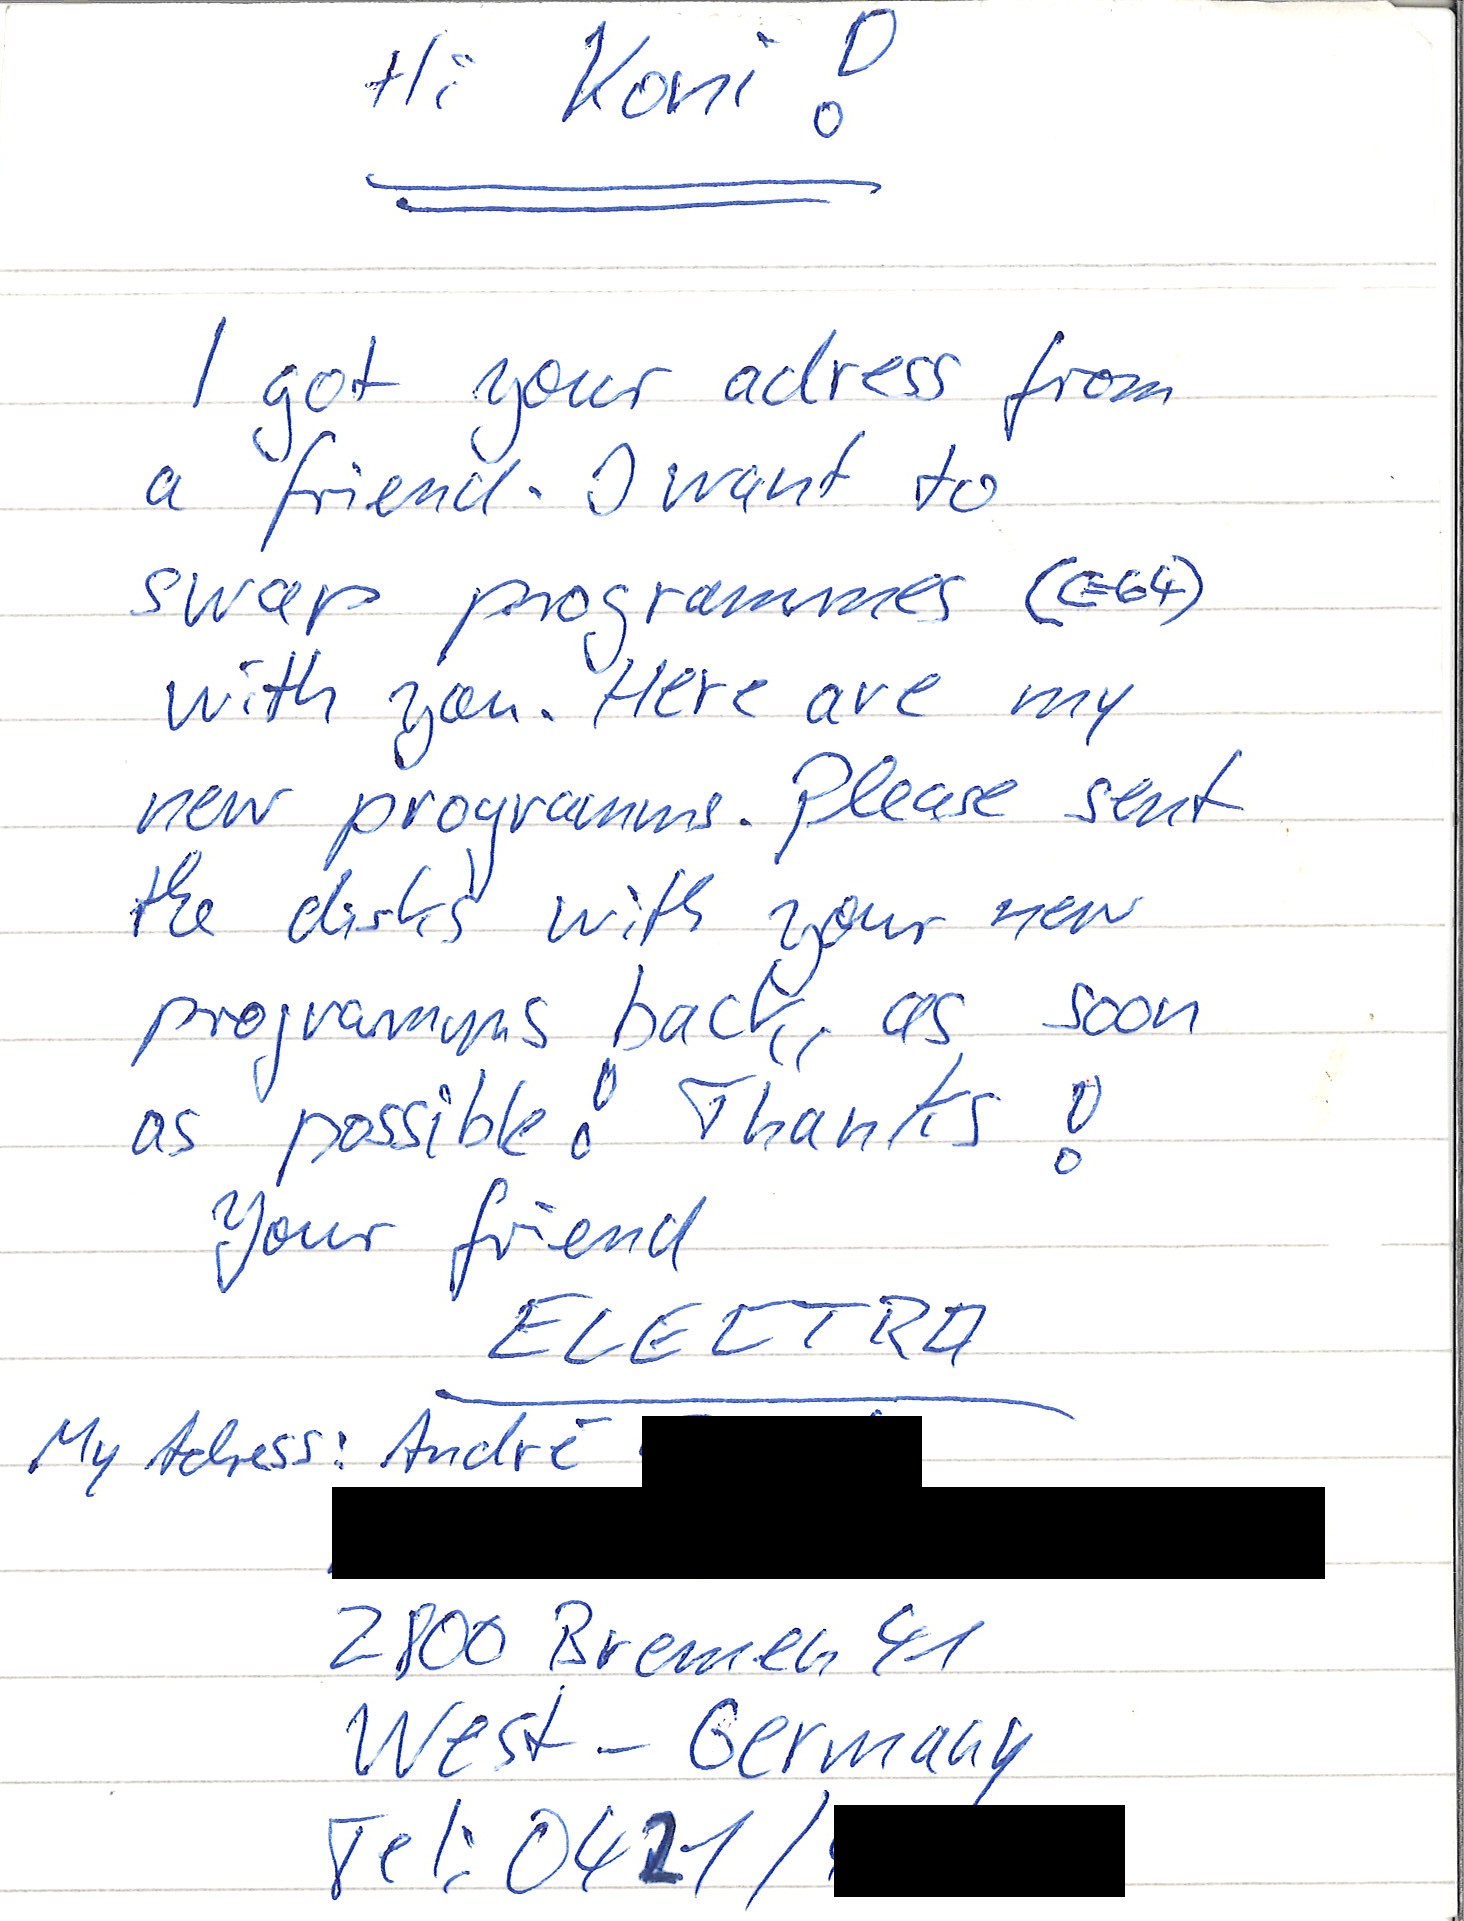 Hi Koni!
I got your adress from
a friend. I want to
swap programmes (C=64)
with you. Here are my
new programms. Please sent
the disks with your new
programms back, as soon
as possible! Thanks!
Your friend
ELECTRA
My Adress: André
2800 Bremen 41
West-Germany
Tel: 0421/